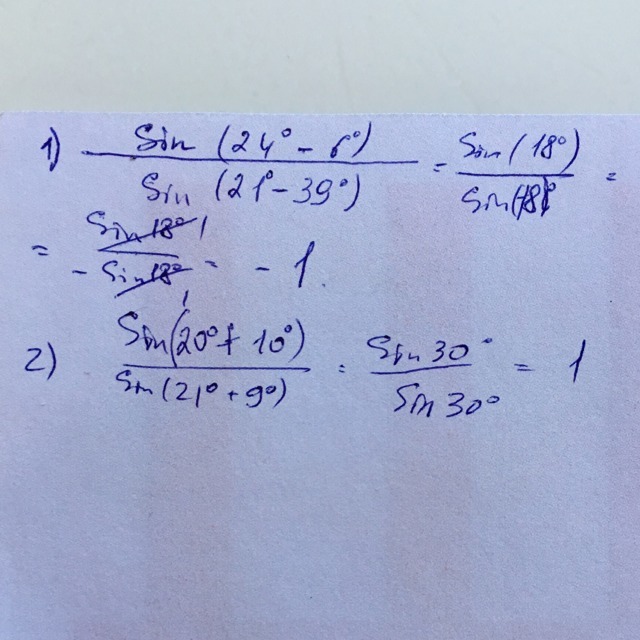 1) Sin (24° - 6°) / Sin (21° - 39°) = Sin (18°) / Sin(-18°) =
= Sin 18° / - Sin 18° = - 1.
2) Sin(20° + 10°) / Sin (21° + 9°) = Sin 30° / Sin 30° = 1